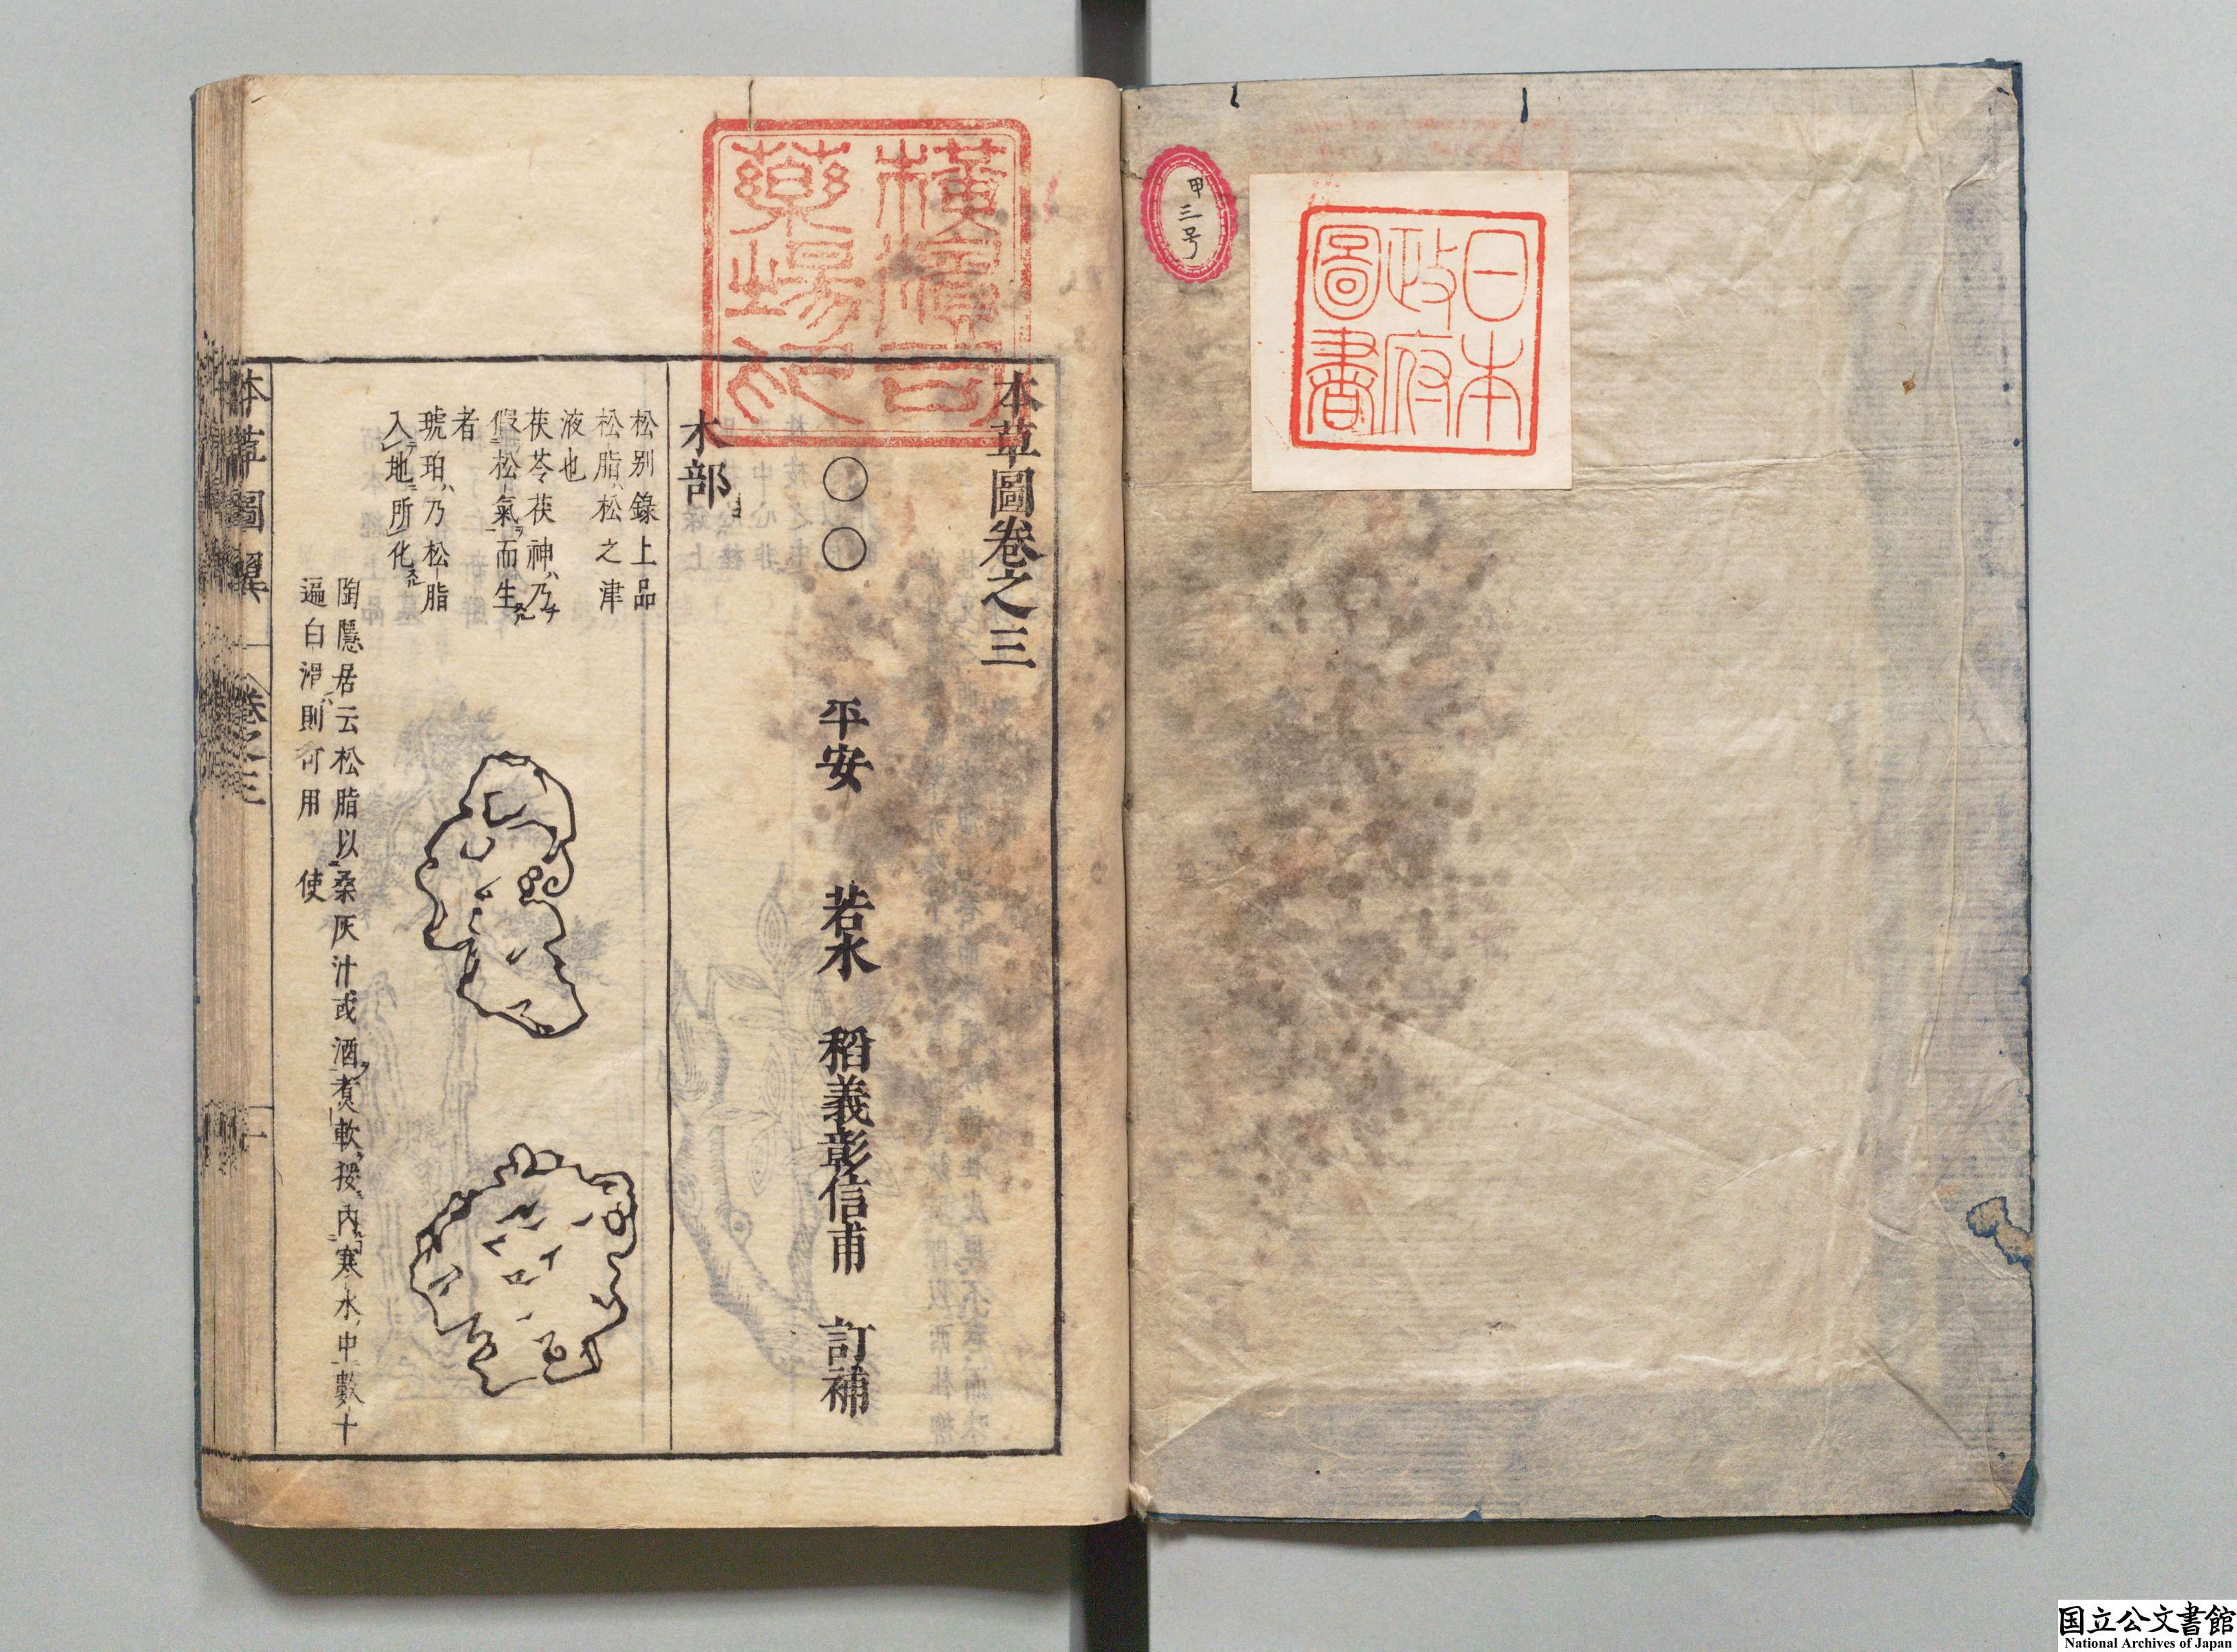 甲三号
日本
政府
圖書
横濱司
藥場印
本草圖卷之三
〇〇 平安 若水 稻義彰信甫 訂補
木部
松別錄上品
松脂松之津
液也
茯苓茯神ハ乃チ
假松氣而生スル
者
琥珀ハ乃松脂
入地所化スル
陶隱居云松脂以桑灰汁或酒煮軟挼内寒水中數十
遍白滑則可用 使
本草圖翼 卷之三 一
国立公文書館
National Archives of Japan